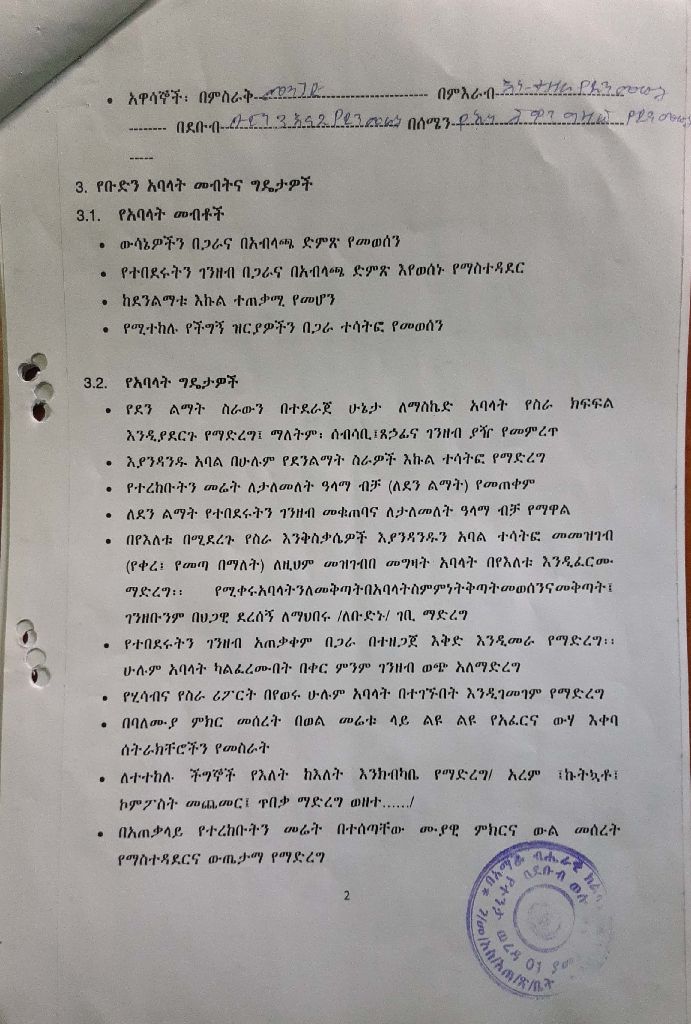 • አዋሳኞች፡ በምስራቅ መንገድ በምእራብ
በደቡብ በሰሜን
3. የቡድን አባላት መብትና ግዴታዎች
3.1. የአባላት መብቶች
• ውሳኔዎችን በጋራና በአብላጫ ድምጽ የመወሰን
• የተበደሩትን ገንዘብ በጋራና በአብላጫ ድምጽ እየወሰኑ የማስተዳደር
• ከደንልማቱ እኩል ተጠቃሚ የመሆን
• የሚተከሉ የችግኝ ዝርያዎችን በጋራ ተሳትፎ የመወሰን
3.2. የአባላት ግዴታዎች
• የደን ልማት ስራውን በተደራጀ ሁኔታ ለማስኬድ አባላት የስራ ክፍፍል
እንዲያደርጉ የማድረግ፤ ማለትም፡ ሰብሳቢ፤ጸኃፊና ገንዘብ ያዥ የመምረጥ
• እያንዳንዱ አባል በሁሉም የደንልማት ስራዎች እኩል ተሳትፎ የማድረግ
• የተረከቡትን መሬት ለታለመለት ዓላማ ብቻ (ለደን ልማት) የመጠቀም
• ለደን ልማት የተበደሩትን ገንዘብ መቁጠባና ለታለመለት ዓላማ ብቻ የማዋል
• በየእለቱ በሚደረጉ የስራ እንቅስቃሴዎች እያንዳንዱን አባል ተሳትፎ መመዝገብ
(የቀረ፤ የመጣ በማለት) ለዚህም መዝገብበ መግዛት አባላት በየእለቱ እንዲፈርሙ
ማድረግ፡፡ የሚቀሩአባላትንለመቅጣትበአባላትስምምነትቅጣትመወሰንናመቅጣት፤
ገንዘቡንም በህጋዊ ደረሰኝ ለማህበሩ /ለቡድኑ/ ገቢ ማድረግ
• የተበደሩትን ገንዘብ አጠቃቀም በጋራ በተዘጋጀ እቅድ እንዲመራ የማድረግ፡፡
ሁሉም አባላት ካልፈረሙበት በቀር ምንም ገንዘብ ወጭ አለማድረግ
• የሂሳብና የስራ ሪፖርት በየወሩ ሁሉም አባላት በተገኙበት እንዲገመገም የማድረግ
• በባለሙያ ምክር መሰረት በወል መሬቱ ላይ ልዩ ልዩ የአፈርና ውሃ እቀባ
ሰትራክቸሮችን የመስራት
• ለተተከሉ ችግኞች የእለት ከእለት እንክብካቤ የማድረግ/ አረም ፤ኩትኳቶ፤
ኮምፖስት መጨመር፤ ጥበቃ ማድረግ ወዘተ....../
• በአጠቃላይ የተረከቡትን መሬት በተሰጣቸው ሙያዊ ምክርና ውል መሰረት
የማስተዳደርና ውጤታማ የማድረግ
2
በአማራ ብሔራዊ ክልል
በደቡብ ወሎ
ወረዳ 01